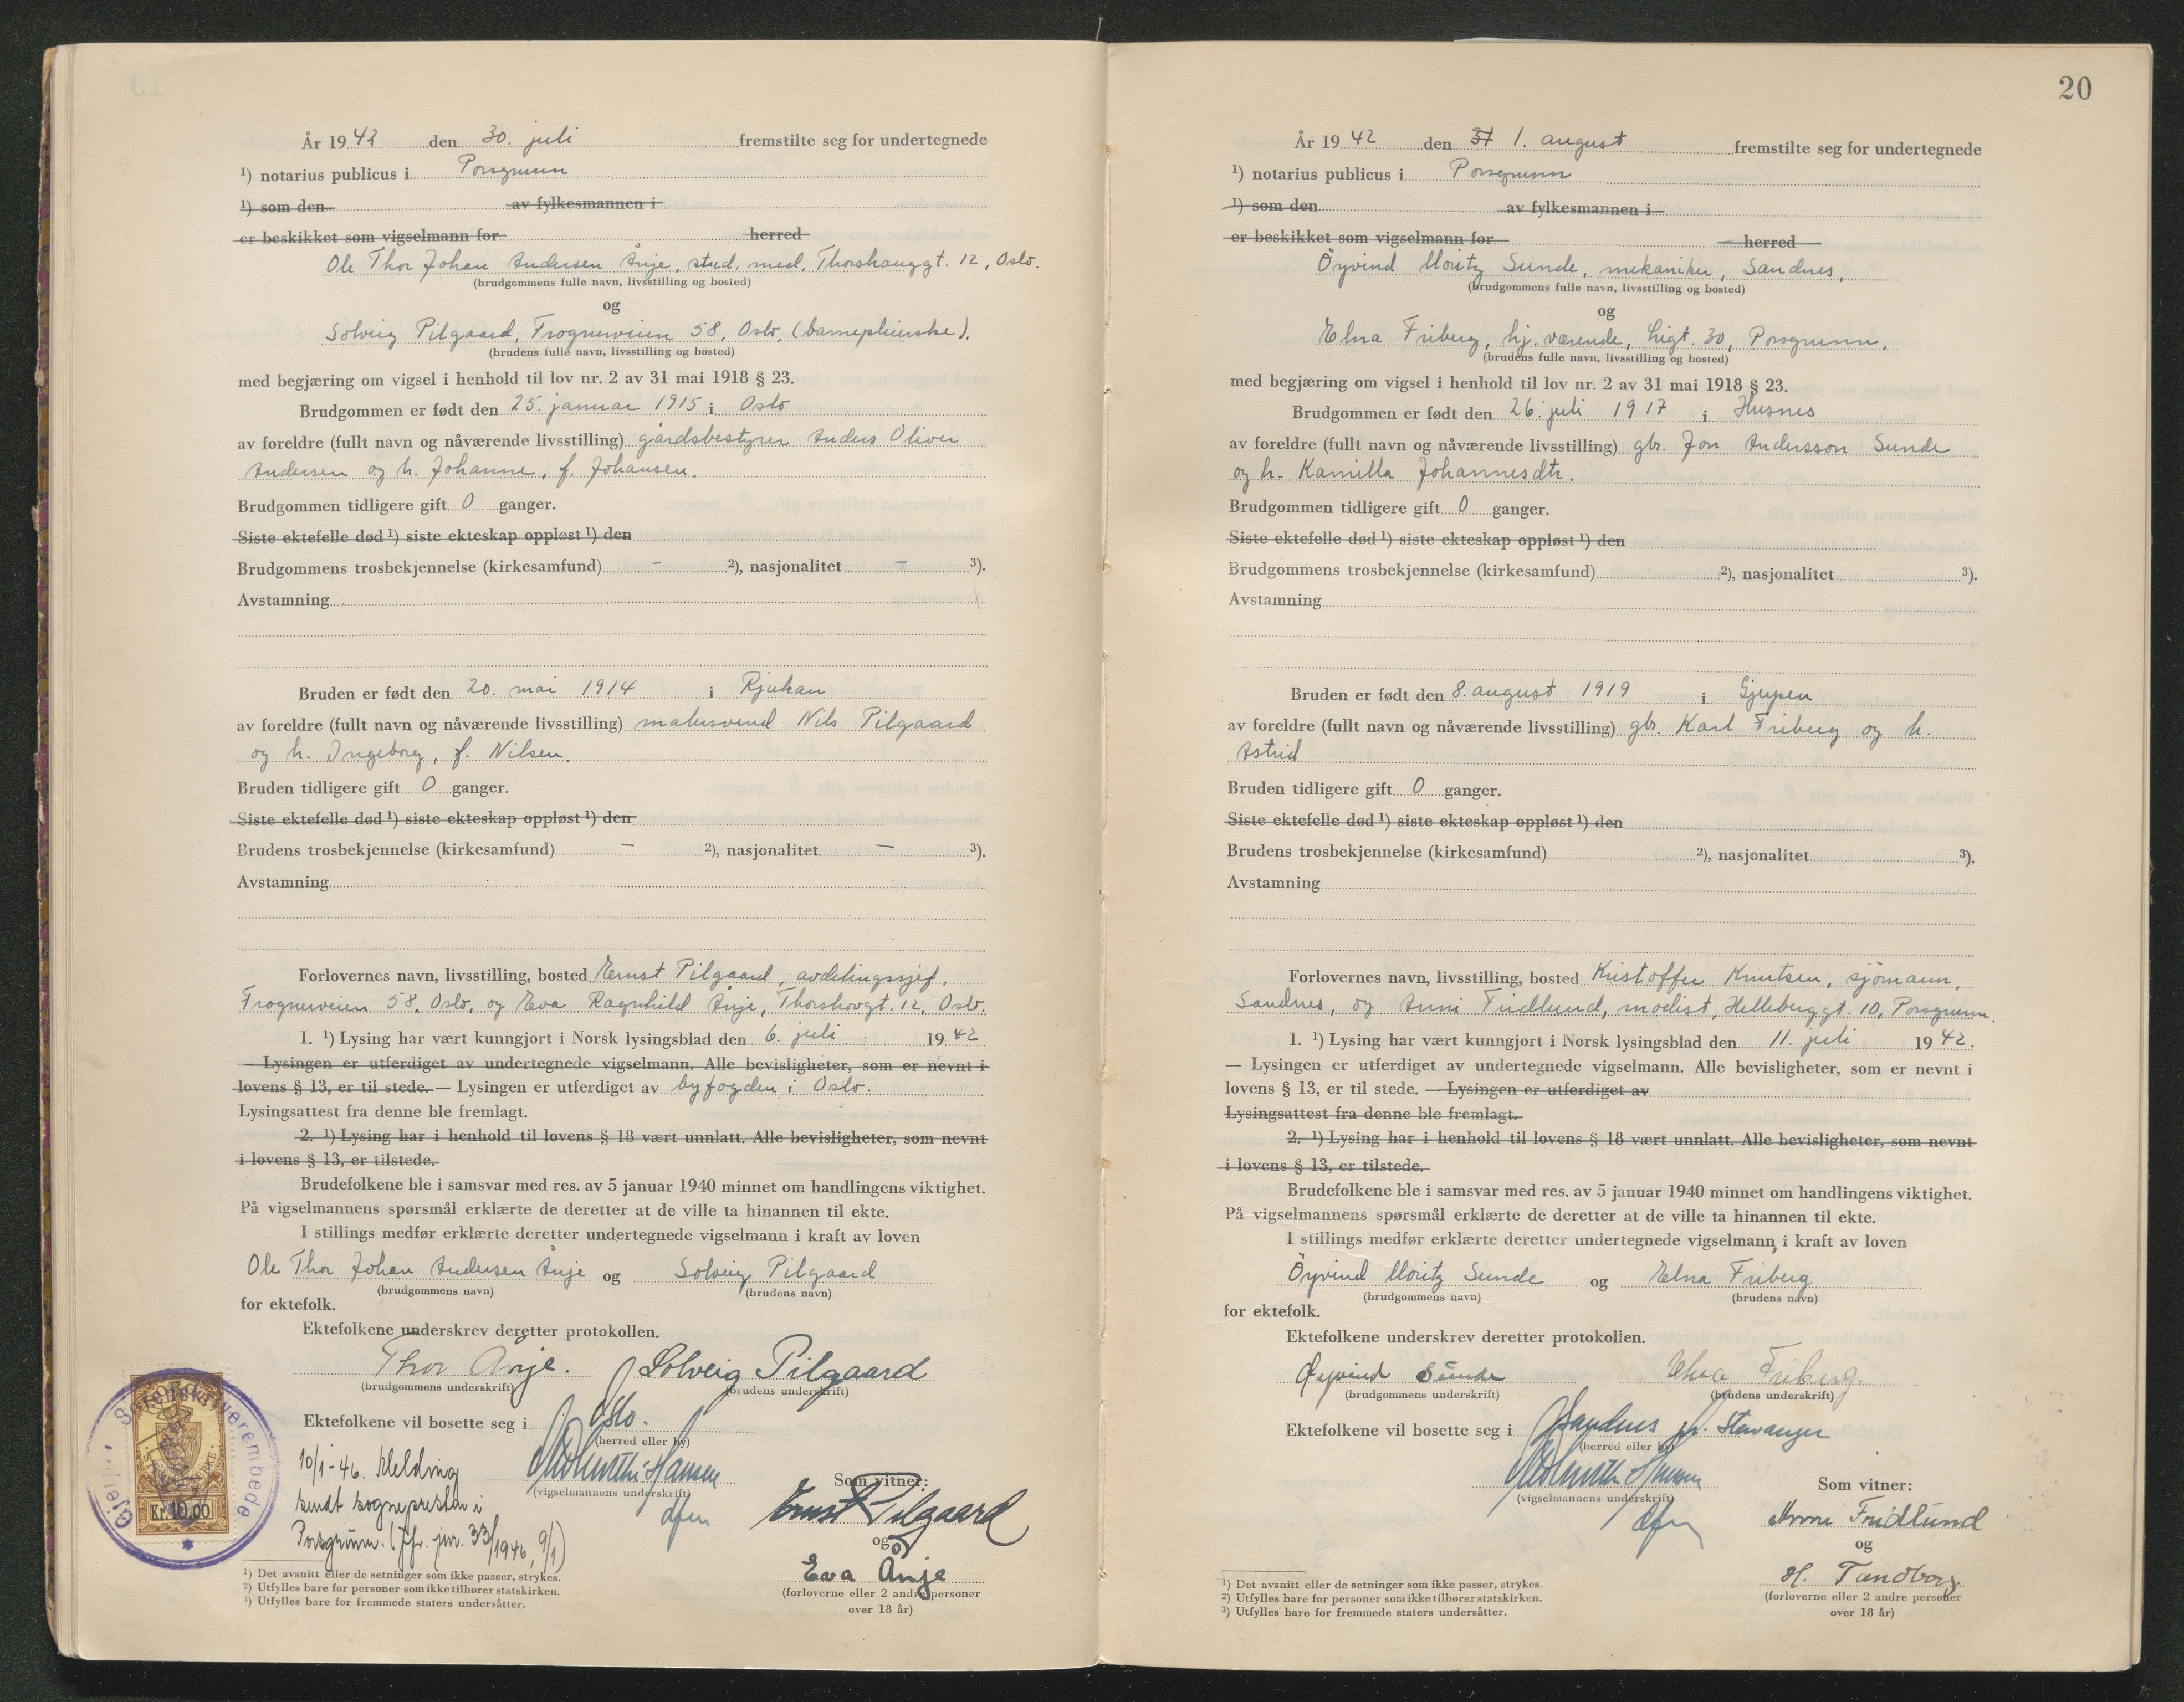 År 1942 den 30. juli fremstilte seg for undertegnede
¹) notarius publicus i Porsgrunn
¹) som den av fylkesmannen i
er beskikket som vigselmann for herred
Ole Thor Johan Andersen Ånje, stud. med, Thorshauggt. 12, Oslo.
(brudgommens fulle navn, livsstilling og bosted)
og
Solveig Pilgaard, Frognerveien 58, Oslo, (barnepleierske).
(brudens fulle navn, livsstilling og bosted)
med begjæring om vigsel i henhold til lov nr. 2 av 31 mai 1918 § 23.
Brudgommen er født den 25. januar 1915 i Oslo
av foreldre (fullt navn og nåværende livsstilling) gårdsbestyrer Anders Oliver
Andersen og h. Johanne, f. Johansen.
Brudgommen tidligere gift 0 ganger.
Siste ektefelle død ¹) siste ekteskap oppløst ¹) den
Brudgommens trosbekjennelse (kirkesamfund) – ²), nasjonalitet – ³).
Avstamning
Bruden er født den 20. mai 1914 i Rjukan
av foreldre (fullt navn og nåværende livsstilling) malersvend Nils Pilgaard
og h. Ingeborg, f. Nilsen.
Bruden tidligere gift 0 ganger.
Siste ektefelle død ¹) siste ekteskap oppløst ¹) den
Brudens trosbekjennelse (kirkesamfund) – ²), nasjonalitet – ³).
Avstamning
Forlovernes navn, livsstilling, bosted Ernst Pilgaard, avdelingssjef,
Frognerveien 58, Oslo, og Eva Ragnhild Ånje, Thorshovgt. 12, Oslo.
1. ¹) Lysing har vært kunngjort i Norsk lysingsblad den 6. juli 1942
— Lysingen er utferdiget av undertegnede vigselmann. Alle bevisligheter, som er nevnt i
lovens § 13, er til stede. — Lysingen er utferdiget av byfogden i Oslo.
Lysingsattest fra denne ble fremlagt.
2. ¹) Lysing har i henhold til lovens § 18 vært unnlatt. Alle bevisligheter, som nevnt
i lovens § 13, er tilstede.
Brudefolkene ble i samsvar med res. av 5 januar 1940 minnet om handlingens viktighet.
På vigselmannens spørsmål erklærte de deretter at de ville ta hinannen til ekte.
I stillings medfør erklærte deretter undertegnede vigselmann i kraft av loven
Ole Thor Johan Andersen Ånje og Solveig Pilgaard
(brudgommens navn) (brudens navn)
for ektefolk.
Ektefolkene underskrev deretter protokollen.
Thor Ånje. Solveig Pilgaard
(brudgommens underskrift) (brudens underskrift)
Ektefolkene vil bosette seg i Oslo.
(herred eller by)
10/1-46. Melding
sendt sognepresten i
Porsgrunn. (Jfr. jnr. 33/1946, 9/1)
Hansen
(vigselmannens underskrift)
Som vitner:
Ernst Pilgaard
og
Eva Ånje
(forloverne eller 2 andre personer
over 18 år)
Kr. 10.00
¹) Det avsnitt eller de setninger som ikke passer, strykes.
²) Utfylles bare for personer som ikke tilhører statskirken.
³) Utfylles bare for fremmede staters undersåtter.
20
År 1942 den 31 1. august fremstilte seg for undertegnede
¹) notarius publicus i Porsgrunn
¹) som den av fylkesmannen i
er beskikket som vigselmann for herred
Öyvind Moritz Sunde, mekaniker, Sandnes,
(brudgommens fulle navn, livsstilling og bosted)
og
Elna Friberg, hj. værende, Ligt. 30, Porsgrunn,
(brudens fulle navn, livsstilling og bosted)
med begjæring om vigsel i henhold til lov nr. 2 av 31 mai 1918 § 23.
Brudgommen er født den 26. juli 1917 i Husnes
av foreldre (fullt navn og nåværende livsstilling) gbr. Jon Andersson Sunde
og h. Kamilla Johannesdtr.
Brudgommen tidligere gift 0 ganger.
Siste ektefelle død ¹) siste ekteskap oppløst ¹) den
Brudgommens trosbekjennelse (kirkesamfund) ²), nasjonalitet ³).
Avstamning
Bruden er født den 8. august 1919 i Gjerpen
av foreldre (fullt navn og nåværende livsstilling) gbr. Karl Friberg og h.
Astrid
Bruden tidligere gift 0 ganger.
Siste ektefelle død ¹) siste ekteskap oppløst ¹) den
Brudens trosbekjennelse (kirkesamfund) ²), nasjonalitet ³).
Avstamning
Forlovernes navn, livsstilling, bosted Kristoffer Knutsen, sjömann,
Sandnes, og Anni Fridlund, modist, Helleberggt. 10, Porsgrunn.
1. ¹) Lysing har vært kunngjort i Norsk lysingsblad den 11. juli 1942.
— Lysingen er utferdiget av undertegnede vigselmann. Alle bevisligheter, som er nevnt i
lovens § 13, er til stede. — Lysingen er utferdiget av
Lysingsattest fra denne ble fremlagt.
2. ¹) Lysing har i henhold til lovens § 18 vært unnlatt. Alle bevisligheter, som nevnt
i lovens § 13, er tilstede.
Brudefolkene ble i samsvar med res. av 5 januar 1940 minnet om handlingens viktighet.
På vigselmannens spørsmål erklærte de deretter at de ville ta hinannen til ekte.
I stillings medfør erklærte deretter undertegnede vigselmann i kraft av loven
Öyvind Moritz Sunde og Elna Friberg
(brudgommens navn) (brudens navn)
for ektefolk.
Ektefolkene underskrev deretter protokollen.
Øyvind Sunde Elna Friberg.
(brudgommens underskrift) (brudens underskrift)
Ektefolkene vil bosette seg i Sandnes pr. Stavanger
(herred eller by)
Hansen
(vigselmannens underskrift)
Som vitner:
Anni Fridlund
og
H. Tandberg
(forloverne eller 2 andre personer
over 18 år)
¹) Det avsnitt eller de setninger som ikke passer, strykes.
²) Utfylles bare for personer som ikke tilhører statskirken.
³) Utfylles bare for fremmede staters undersåtter.